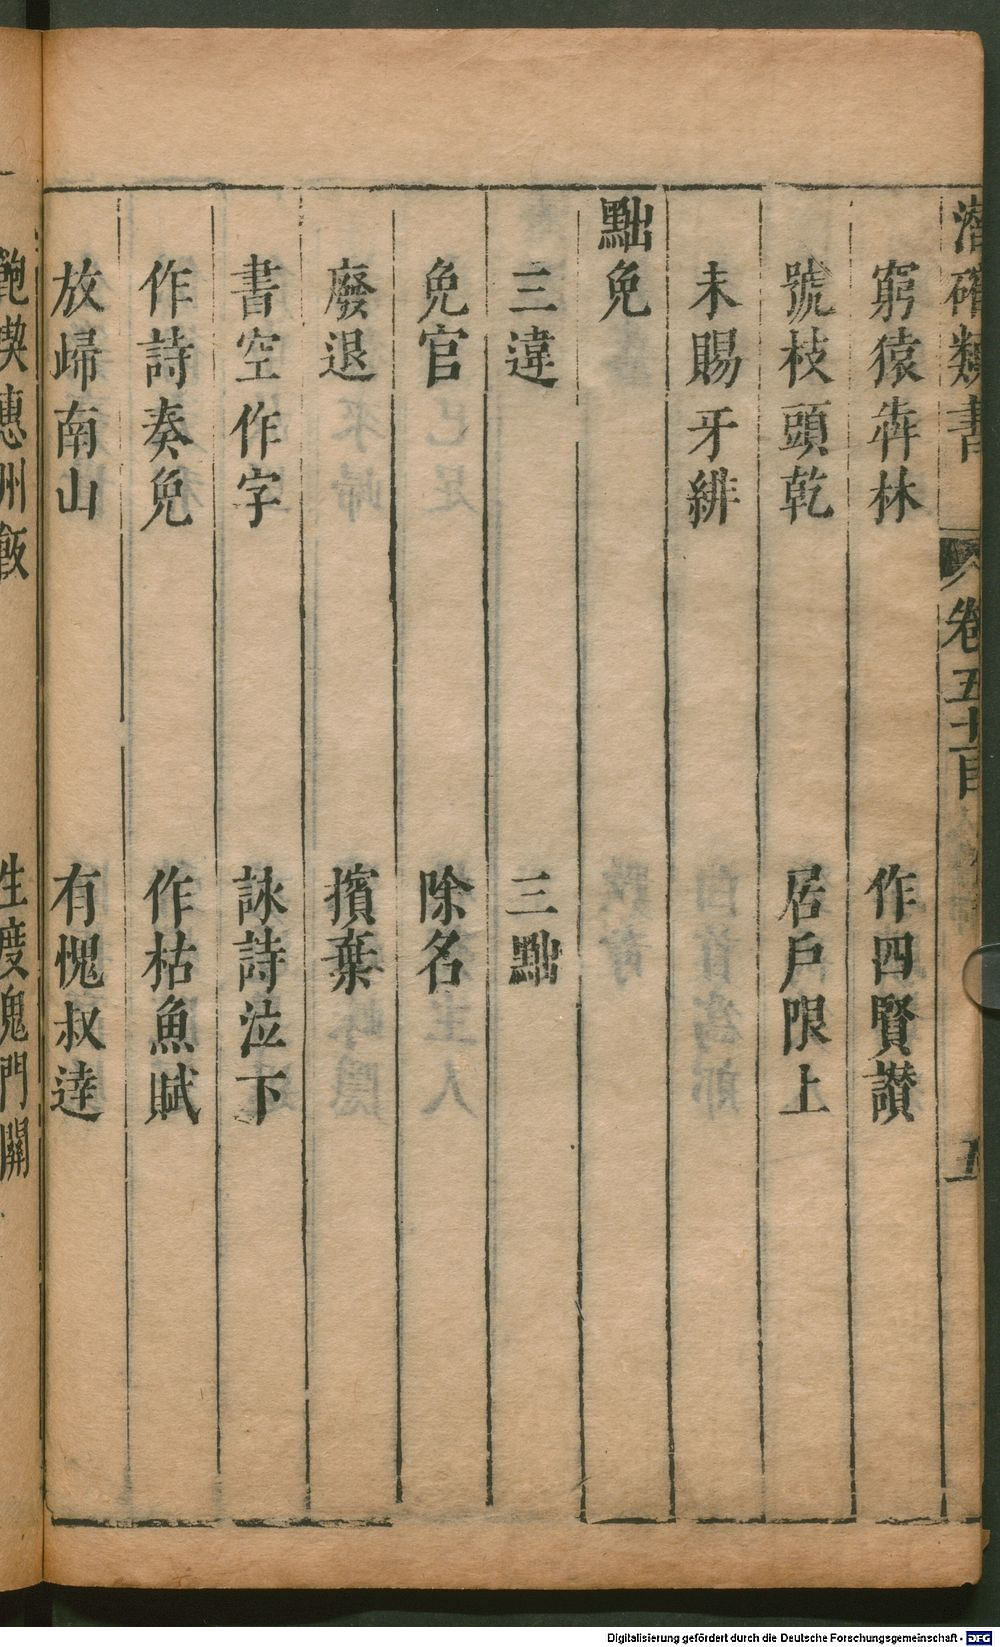 潛確類書 卷五十六目 五
窮猿奔林 作四賢讃
號枝頭乾 居戶限上
未賜牙緋
黜免
三違 三黜
免官 除名
廢退 擯棄
書空作字 詠詩泣下
作詩奏免 作枯魚賦
放歸南山 有愧叔達
飽喫惠州飯 生度鬼門關
Digitalisierung gefördert durch die Deutsche Forschungsgemeinschaft - DFG